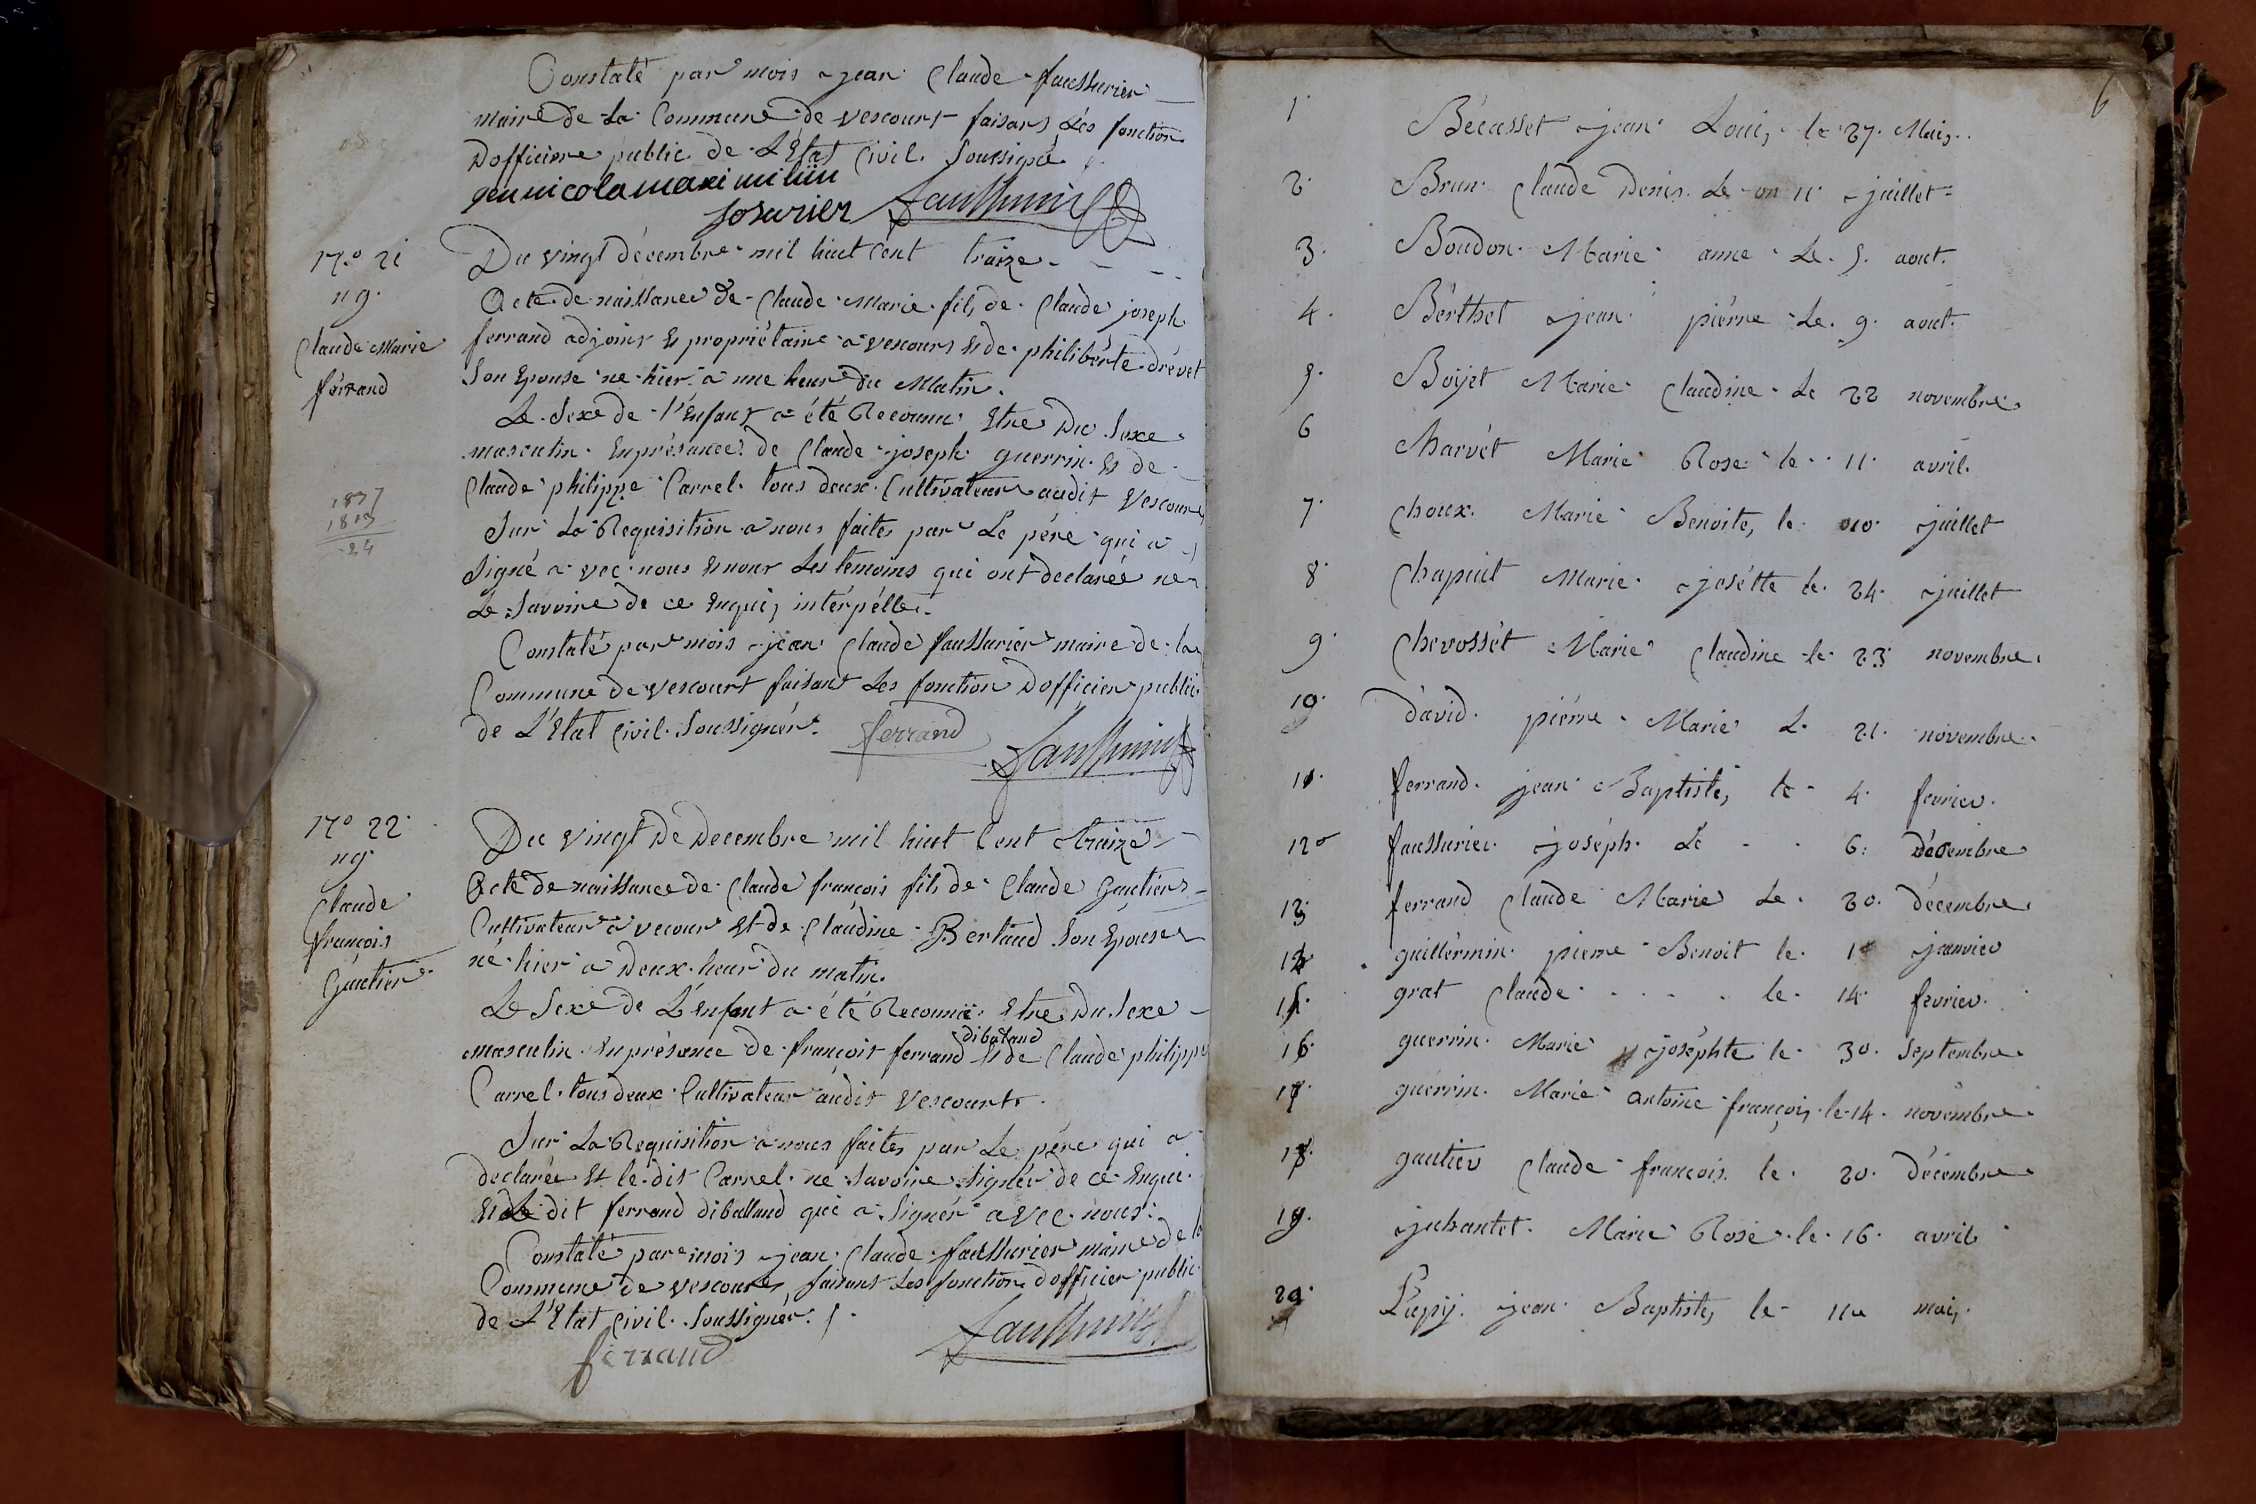 Constaté par mois jean Claude faussurier
maire de La Commune de vescourt faisans Les fonction
Dofficiere public de L'Etat Civil Soussigné
jean nicola maximilien
fosurier faussurier
N.o 21
ng.
Claude Marie
ferrand
Du vingt décembre mil huit Cent traize
Acte de naissance de Claude Marie fils de Claude joseph
ferrand adjoint Et propriétaire a vescours Et de philibérte drévet
Son Epouse ne hier a une heur du Matin.
Le Sexe de l'Enfant a été Reconnu Etre Du Sexe
masculin En présance de Claude joseph guerrin Et de
Claude philippe Carrel tous deux Cultivateur audit vescours
Sur La Requisition a nous faites par Le pére qui a
Signé a vec nous Et nour Les temoins qui ont declarée ne
Le Savoire de ce Enquis intérpéllé.
Constaté par mois jean Claude faussurier maire de la
Commune de vescourt faisant Les fonction Dofficier public
de L'Etat Civil Soussignér.
ferrand
faussurier
1837
1813
24
N.o 22
ng.
Claude
françois
Gautier
Du vingt De Decembre mil huit Cent traize
Acte de naissance de Claude françois fils de Claude Gautier
Cultivateur a vecour Et de Claudine Bertaud Son Epouse
né hier a Deux heur du matin.
Le Sexe de L'Enfant a été Reconnu Etre Du Sexe
dibataud
masculin En présance de françois ferrand Et de Claude philippe
Carrel tous deux Cultivateur audit vescourt.
Sur La Requisition a nous faites par Le pére qui a
declarée Et le dit Carrel ne Savoire Signér de ce Enqui
Et Le dit ferrand diballaud qui a Signér avec nous.
Constaté par mois jean Claude faussurier maire de la
Commune de vescours faisant Les fonction dofficier public
de L'Etat Civil Soussignér.
ferrand
faussurier
6
1. Bécasset jean Louis le 27. Mais.
2. Brun Claude Denis Le 11 juillet
3. Boudon Marie anne Le 5. aout.
4. Bérthet jean piérre Le 9. aout.
5. Boyet Marie Claudine Le 22 novembre
6 Charvét Marie Rose le 11 avril.
7. Choux Marie Benoite, le 10 juillet
8. Chapuit Marie josétte le 24. juillet
9. Chevossét Marie Claudine le 23 novembre.
10. david piérre Marie L. 21. novembre.
11. ferrand jean Baptiste, le 4. fevrier.
12. faussurier joséph Le 6. décembre
13. ferrand Claude Marie Le 20. décembre
14. guillérmin pierre Benoit le 1er janvier
15. grat Claude le 14. fevrier.
16. guerrin Marie joséphte le 30. Septembre.
17. guérrin Marie antoine françois le 14. novembre.
18. gautier Claude françois le 20. décembre
19. juhantet Marie Rose le 16. avril
20. Lupy jean Baptiste, le mai,